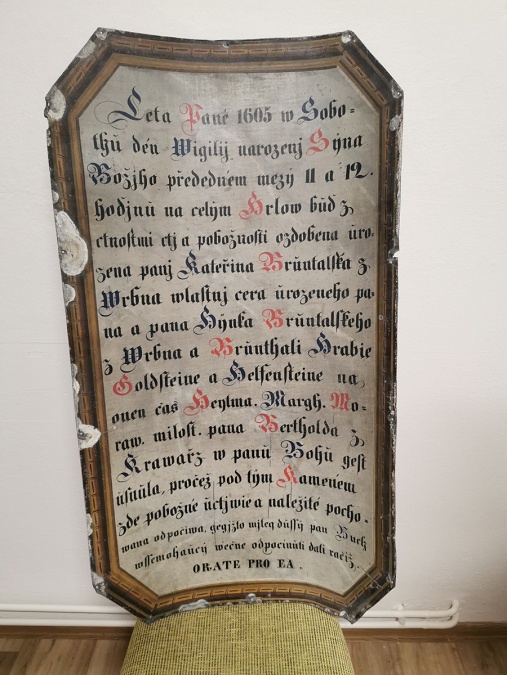 Leta Pané 1605 w Sobo=
thü dén Wigilij narozenj Sÿna
Božjho předednem mezÿ 11 a 12.
hodjnü na celÿm Hrlow büd ž
ctnostmi ctj a pobožnosti ozdobena üro-
zena panj Kateřina Brüntalska ž
Wrbna wlastnj cera ürozeneho pa-
na a pana Hÿnka Brüntalskeho
ž Wrbna a Brünthali Hrabie
Goldsteine a Helfensteine na
onen čas Heytma. Margh. Mo-
raw. milost. pana Bertholda ž
Krawařž w panü Bohü gest
üsnüla, pročež pod tÿm Kamenem
žde pobožné üctjwie a naležité pocho-
wana odpočiwa, gegjžto miley düssÿ pan Bueh
wssemohaücÿ wečne odpocinüti dati račiž.
ORATE PRO EA.